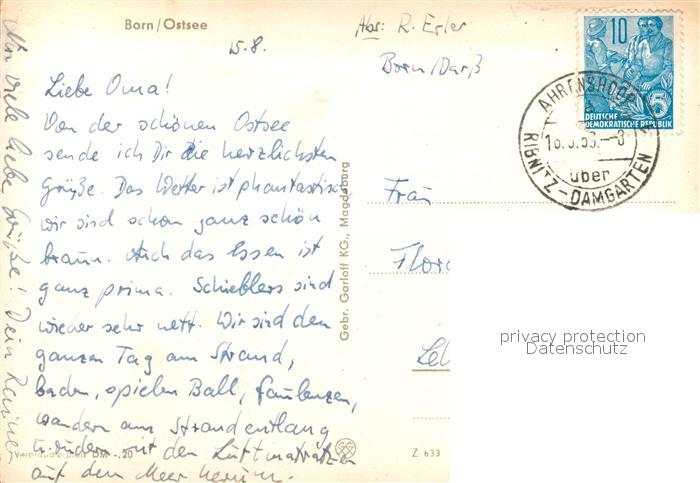 Born/Ostsee
15.8.
Liebe Oma!
Von der schönen Ostsee
sende ich Dir die herzlichsten
Grüße. Das Wetter ist phantastisch,
wir sind schon ganz schön
braun. Auch das Essen ist
ganz prima. Schieblers sind
wieder sehr nett. Wir sind den
ganzen Tag am Strand,
baden, spielen Ball, faulenzen,
wandern am Strand entlang
u. rudern mit den Luftmatratzen
auf dem Meer herum.
Nun viele liebe Grüße! Dein Rainer
Verbraucherpreis DM -.20
Gebr. Garloff KG., Magdeburg
Z 633
Abs: R. Erler
Born/Darß
10
5
DEUTSCHE
DEMOKRATISCHE REPUBLIK
AHRENSHOOP
über
RIBNITZ-DAMGARTEN
Frau
Flor
privacy protection
Datenschutz